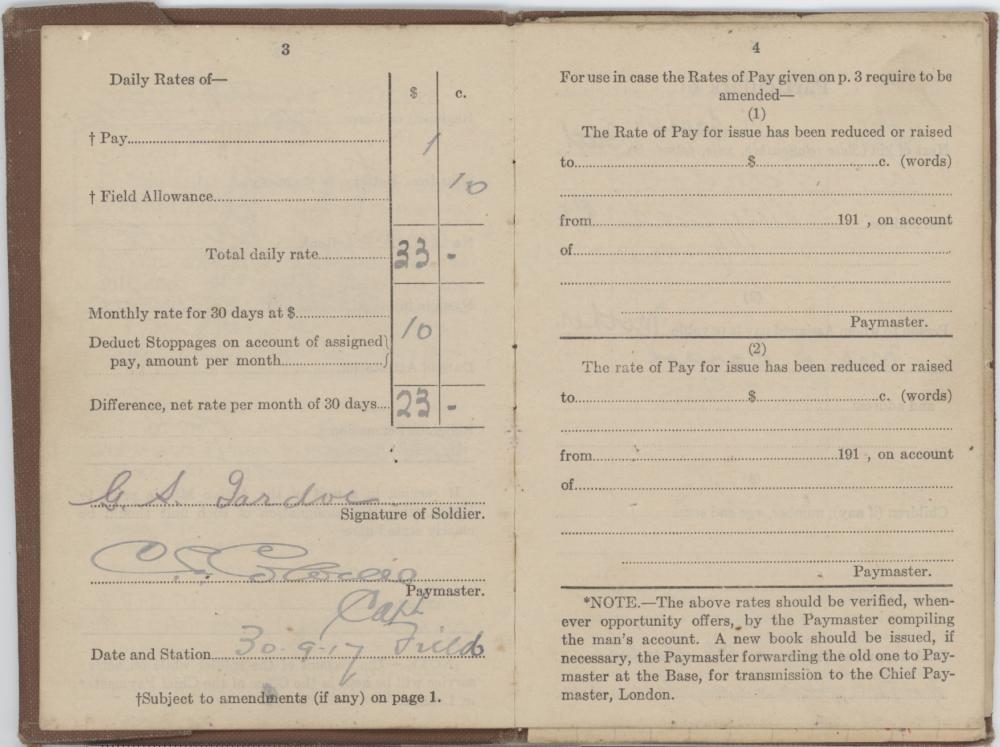 3
Daily Rates of—
$ c.
† Pay 1
† Field Allowance 10
Total daily rate 33 -
Monthly rate for 30 days at $
Deduct Stoppages on account of assigned
pay, amount per month 10
Difference, net rate per month of 30 days 23 -
G. S.
Signature of Soldier.
Paymaster.
Capt
Date and Station 30-9-17 Field
†Subject to amendments (if any) on page 1.
4
For use in case the Rates of Pay given on p. 3 require to be
amended—
(1)
The Rate of Pay for issue has been reduced or raised
to $ c. (words)
from 191 , on account
of
Paymaster.
(2)
The rate of Pay for issue has been reduced or raised
to $ c. (words)
from 191 , on account
of
Paymaster.
*NOTE.—The above rates should be verified, when-
ever opportunity offers, by the Paymaster compiling
the man's account. A new book should be issued, if
necessary, the Paymaster forwarding the old one to Pay-
master at the Base, for transmission to the Chief Pay-
master, London.